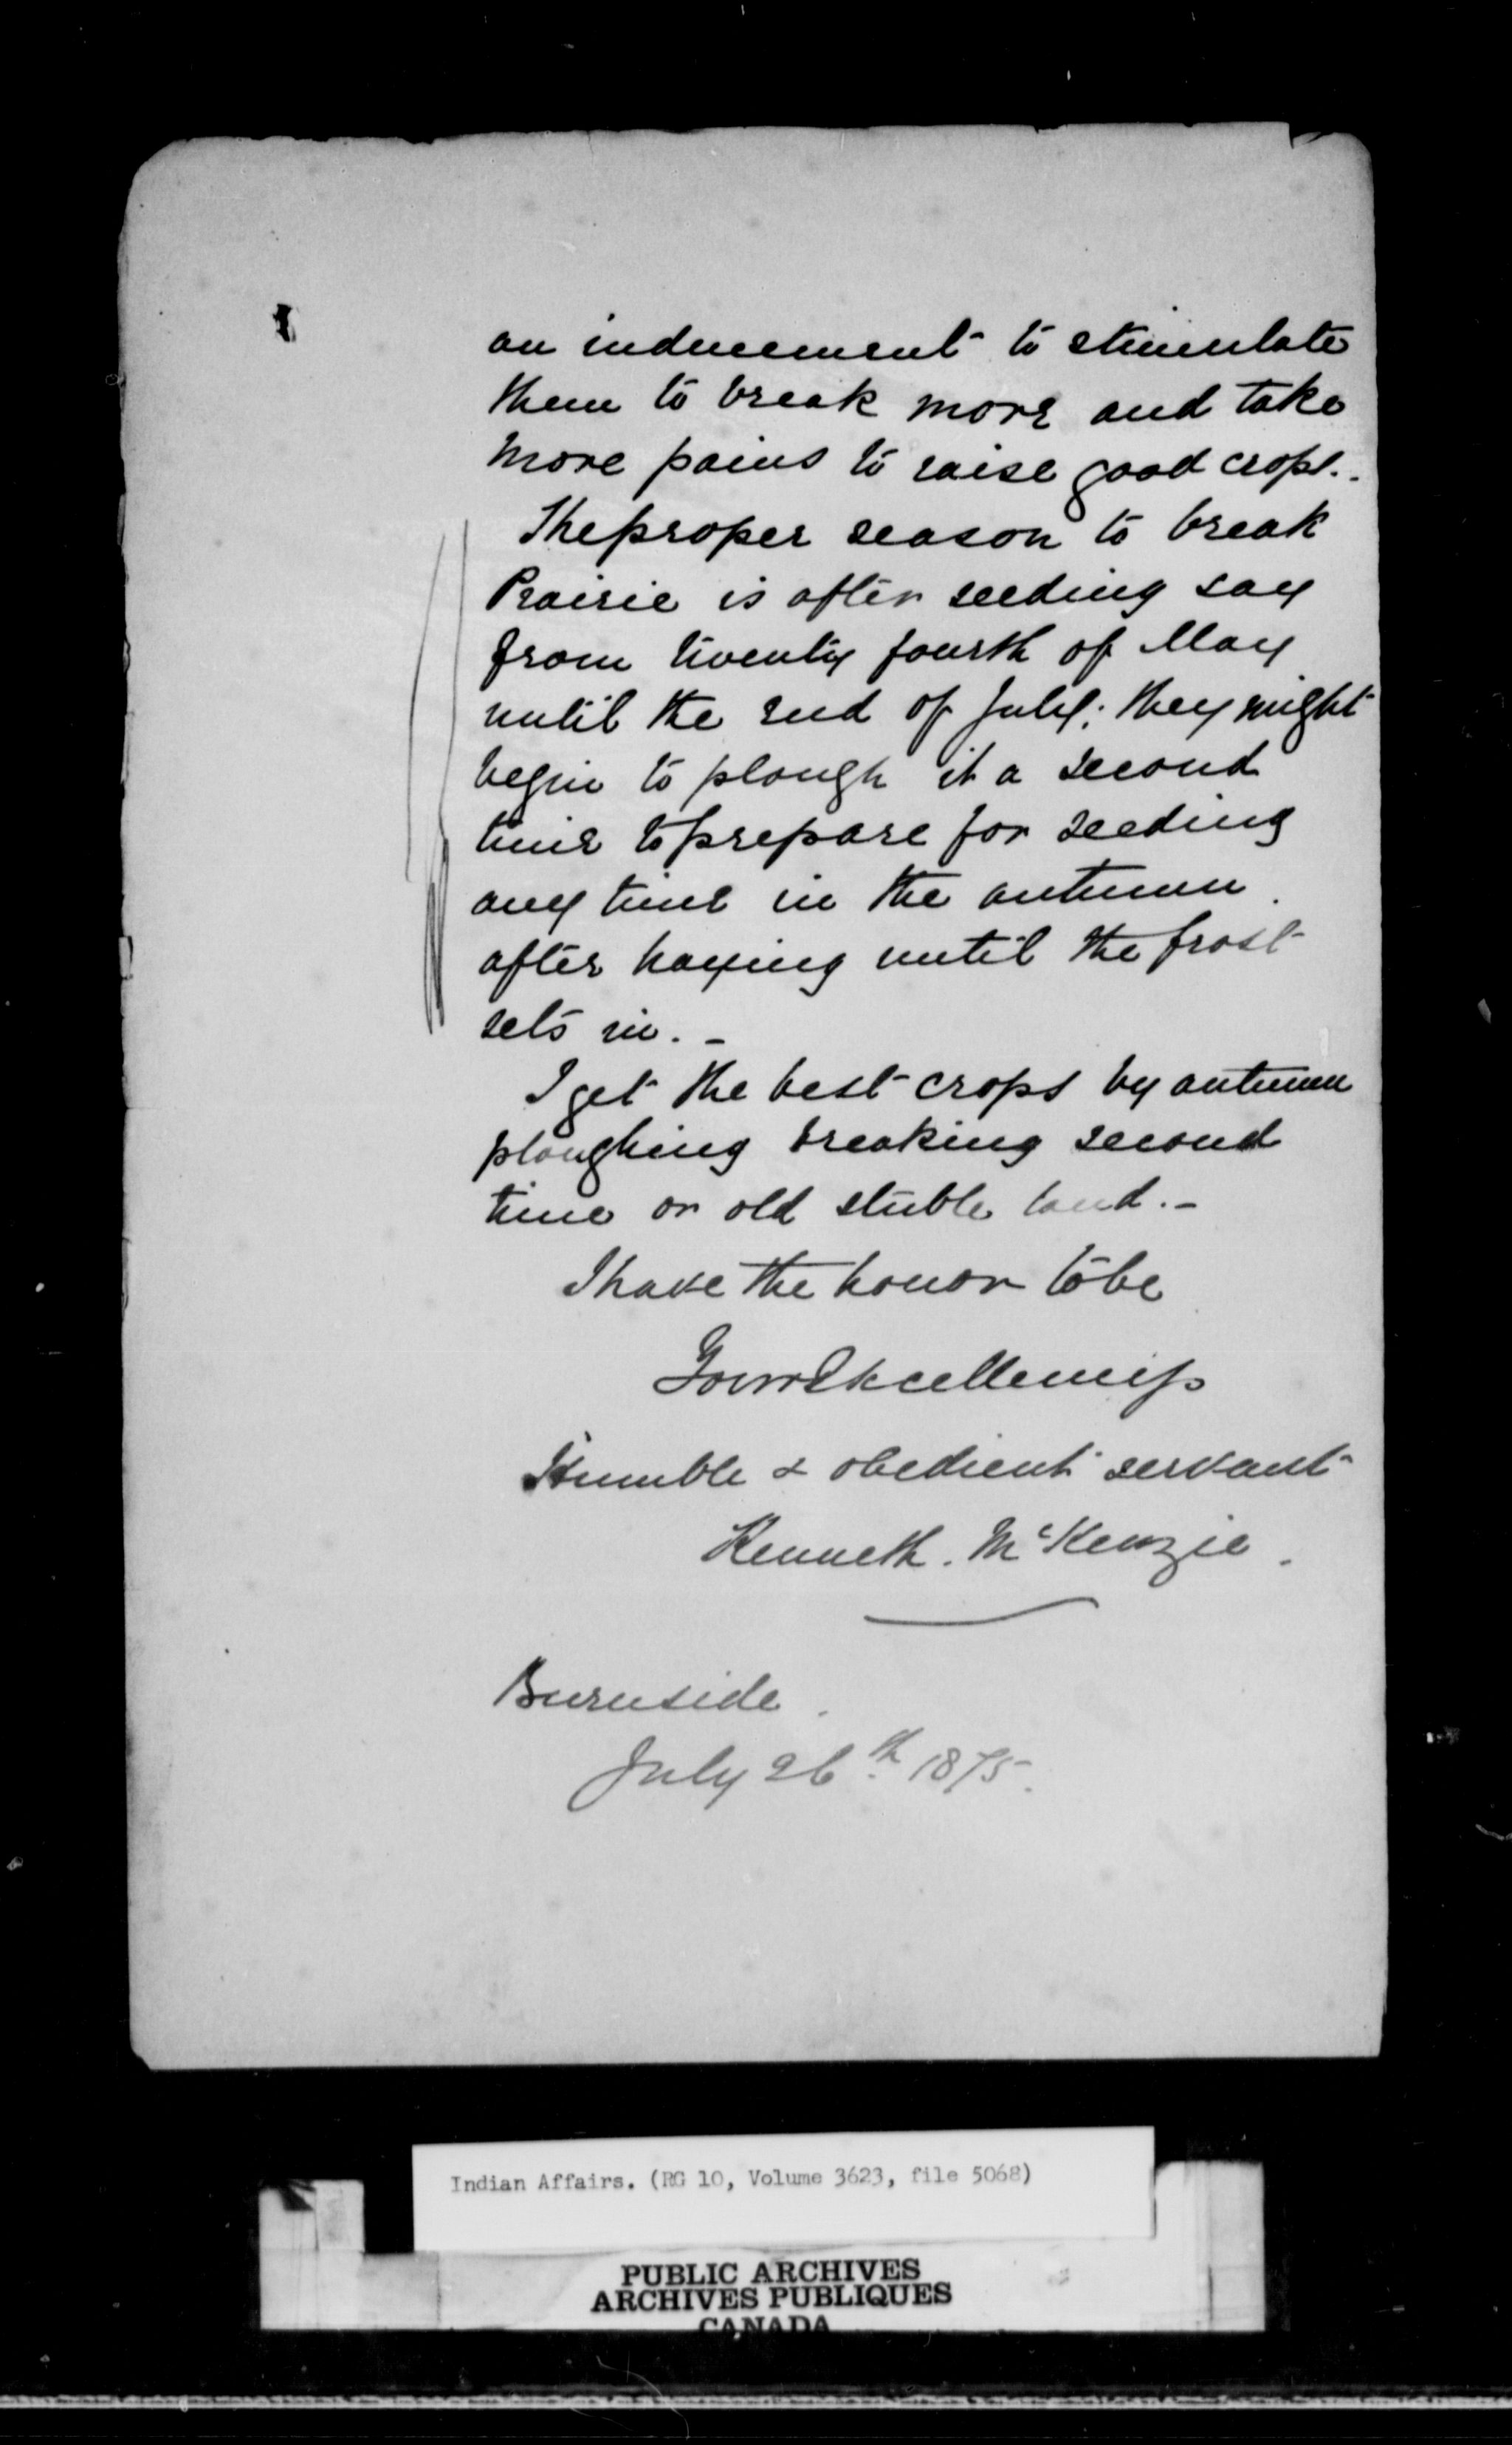 an inducement to stimulate
them to break more and take
more pains to raise good crops.
The proper season to break
Prairie is after seeding say
from twenty fourth of May
until the end of July; they might
begin to plough it a second
time to prepare for seeding
any time in the autumn
after haying until the frost
sets in. -
I get the best crops by autumn
ploughing breaking second
time or old stuble land. -
I have the honor to be
Your Excellency's
Humble & obedient servant
Kenneth. McKenzie.
Burnside.
July 26th 1875.
Indian Affairs. (RG 10, Volume 3623, file 5068)
PUBLIC ARCHIVES
ARCHIVES PUBLIQUES
CANADA